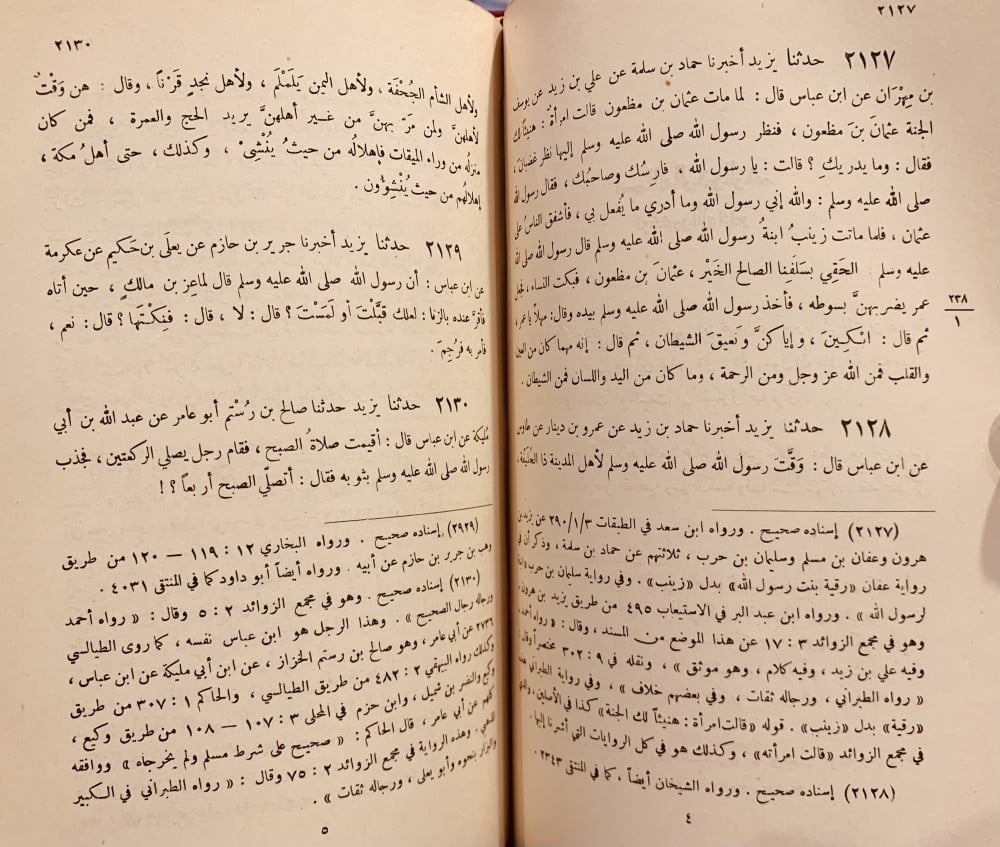 ٢١٢٧
٢١٢٧ حدثنا يزيد أخبرنا حماد بن سلمة عن علي بن زيد عن يوسف
بن مِهْرَان عن ابن عباس قال : لما مات عثمان بن مظعون قالت امرأة : هنيئاً لك
الجنة عثمانَ بنَ مظعون ، فنظر رسول الله صلى الله عليه وسلم إليها نظر غضبان ،
فقال : وما يدريكِ ؟ قالت : يا رسول الله ، فارسُك وصاحبُك ، فقال رسول الله
صلى الله عليه وسلم : والله إني رسول الله وما أدري ما يُفعل بي ، فأشفق الناسُ على
عثمان ، فلما ماتت زينبُ ابنةُ رسول الله صلى الله عليه وسلم قال رسول الله صلى الله
عليه وسلم : الحَقِي بسَلَفِنا الصالح الخَيْر ، عثمانَ بنِ مظعون ، فبكت النساء ، فجعل
عمر يضربهنَّ بسوطه ، فأخذ رسول الله صلى الله عليه وسلم بيده وقال : مهلاً يا عمر ،
ثم قال : ابْكِينَ ، وإياكنَّ ونَعيقَ الشيطان ، ثم قال : إنه مهما كان من العين
والقلب فمن الله عز وجل ومن الرحمة ، وما كان من اليد واللسان فمن الشيطان .
٢٣٨
١
٢١٢٨ حدثنا يزيد أخبرنا حماد بن زيد عن عمرو بن دينار عن طاوس
عن ابن عباس قال : وَقَّتَ رسول الله صلى الله عليه وسلم لأهل المدينة ذا الحُلَيْفَة ،
(٢١٢٧) إسناده صحيح . ورواه ابن سعد في الطبقات ٢٩٠/١/٣ عن يزيد بن
هرون وعفان بن مسلم وسلمان بن حرب ، ثلاثتهم عن حماد بن سلمة ، وذكر أن في
رواية عفان «رقية بنت رسول الله» بدل «زينب» . وفي رواية سلمان بن حرب «ابنة
لرسول الله» . ورواه ابن عبد البر في الاستيعاب ٤٩٥ من طريق يزيد بن هرون .
وهو في مجمع الزوائد ٣ : ١٧ عن هذا الموضع من المسند ، وقال : «رواه أحمد ،
وفيه علي بن زيد ، وفيه كلام ، وهو موثق» ، ونقله في ٩ : ٣٠٢ مختصراً وقال :
«رواه الطبراني ، ورجاله ثقات ، وفي بعضهم خلاف» ، وفي رواية الطبراني هذه
«رقية» بدل «زينب» . قوله «قالت امرأة : هنيئاً لك الجنة» كذا في الأصلين ، والذي
في مجمع الزوائد «قالت امرأته» ، وكذلك هو في كل الروايات التي أشرنا إليها .
(٢١٢٨) إسناده صحيح . ورواه الشيخان أيضاً ، كما في المنتقى ٢٣٤٣ .
٤
٢١٣٠
ولأهل الشأم الجُحْفَة ، ولأهل اليمن يَلَمْلَمَ ، ولأهل نجدٍ قَرْناً ، وقال : هن وَقْتٌ
لأهلهنَّ ولمن مَرّ بهنَّ من غير أهلهنَّ يريد الحج والعمرة ، فمن كان
منزلُه من وراء الميقات فإهلالُه من حيثُ يُنْشِئُ ، وكذلك ، حتى أهلُ مكة ،
إهلالُهم من حيثُ يُنْشِؤُون .
٢١٢٩ حدثنا يزيد أخبرنا جرير بن حازم عن يعلَى بن حَكيم عن عكرمة
عن ابن عباس : أن رسول الله صلى الله عليه وسلم قال لماعِز بن مالكٍ ، حين أتاه
فأقرَّ عنده بالزنا : لعلك قَبَّلْتَ أو لَمَسْتَ ؟ قال : لا ، قال : فَنِكْتَهَا ؟ قال : نعم ،
فأمر به فرُجِمَ .
٢١٣٠ حدثنا يزيد حدثنا صالح بن رُسْتُم أبو عامر عن عبد الله بن أبي
مُلَيكة عن ابن عباس قال : أقيمت صلاةُ الصبح ، فقام رجل يصلي الركعتين ، فجذب
رسول الله صلى الله عليه وسلم بثوبه فقال : أتصلّي الصبح أربعاً ؟ !
(٢٩٢٩) إسناده صحيح . ورواه البخاري ١٢ : ١١٩ — ١٢٠ من طريق
وهب بن جرير بن حازم عن أبيه . ورواه أيضاً أبو داود كما في المنتقى ٤٠٣١ .
(٢١٣٠) إسناده صحيح . وهو في مجمع الزوائد ٢ : ٥ وقال : «رواه أحمد
ورجاله رجال الصحيح» . وهذا الرجل هو ابن عباس نفسه ، كما روى الطيالسي
٢٧٣٦ عن أبي عامر ، وهو صالح بن رستم الخزاز ، عن ابن أبي مليكة عن ابن عباس ،
وكذلك رواه البيهقي ٢ : ٤٨٢ من طريق الطيالسي ، والحاكم ١ : ٣٠٧ من طريق
وكيع والنضر بن شميل ، وابن حزم في المحلى ٣ : ١٠٧ — ١٠٨ من طريق وكيع ،
كلهم عن أبي عامر ، قال الحاكم : «صحيح على شرط مسلم ولم يخرجاه» ووافقه
الذهبي . وهذه الرواية في مجمع الزوائد ٢ : ٧٥ وقال : «رواه الطبراني في الكبير
والبزار بنحوه وأبو يعلى ، ورجاله ثقات» .
٥